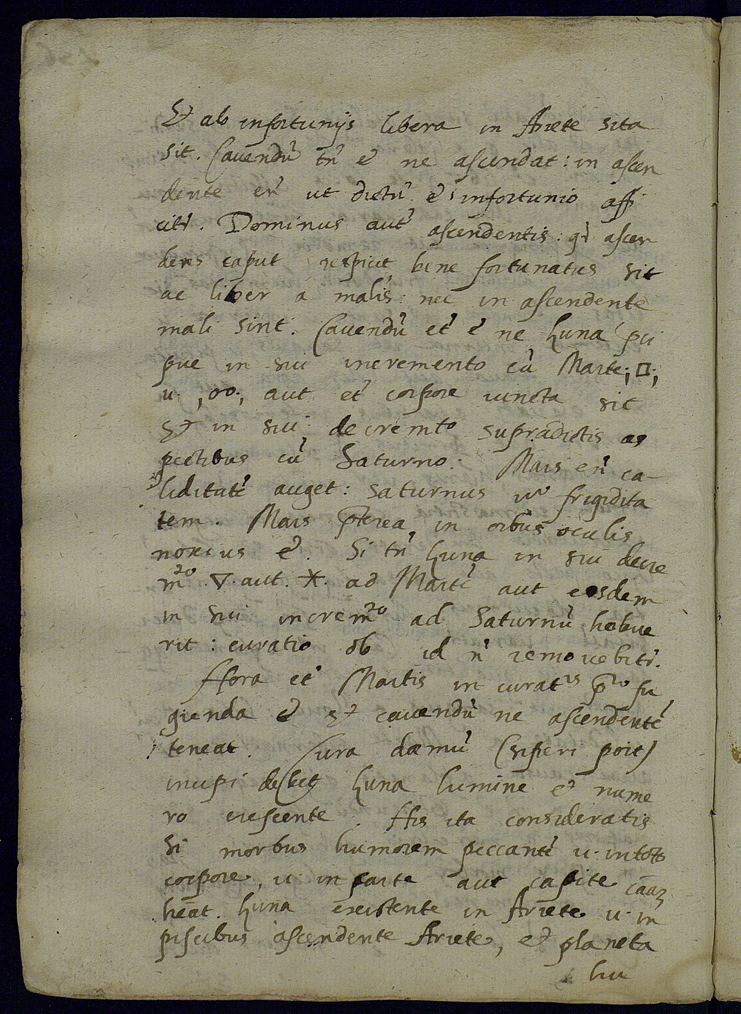 Et ab infortunijs libera in Ariete sita
sit. Cavendũ tñ ẽ ne ascendat: in ascen
dente eñ ut dictũ ẽ infortunio affi
citr. Dominus aut ascendentis: qi ascen
dens caput respicit bene fortunatus sit
ac liber a malis: nec in ascendente
mali sint. Cavendũ et ẽ ne Luna pri
pue in sui incremento cũ Marte, □,
u. , ☍, aut et corpore iuncta sit
Et in sui decremto supradictis as
pectibus cũ Saturno. Mars eñ ca
liditatẽ auget: Saturnus u° frigidita
tem. Mars pterea in orbus oculis
noxius ẽ. Si tñ Luna in sui decre
m^to ▽ aut ⚹ ad Martẽ aut eosdem
in sui increm^to ad Saturnũ habue
rit: curatio ob id ñ removebitr.
Hora et Martis in curat^is fu
gienda ẽ et cavendũ ne ascendentẽ
teneat. Cura demũ (si fieri poit)
incipi debet Luna lumine et nume
ro crescente. His ita consideratis
Si morbus humorem peccantẽ u. in toto
corpore, u. in parte aut capite
heat. Luna existente in Ariete u. in
piscibus ascendente Ariete, et planeta